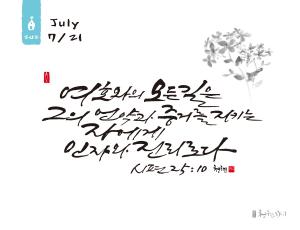 July
7/21
여호와의 모든 길은
그의 언약과 증거를 지키는
자에게
인자와 진리로다
시편 25:10